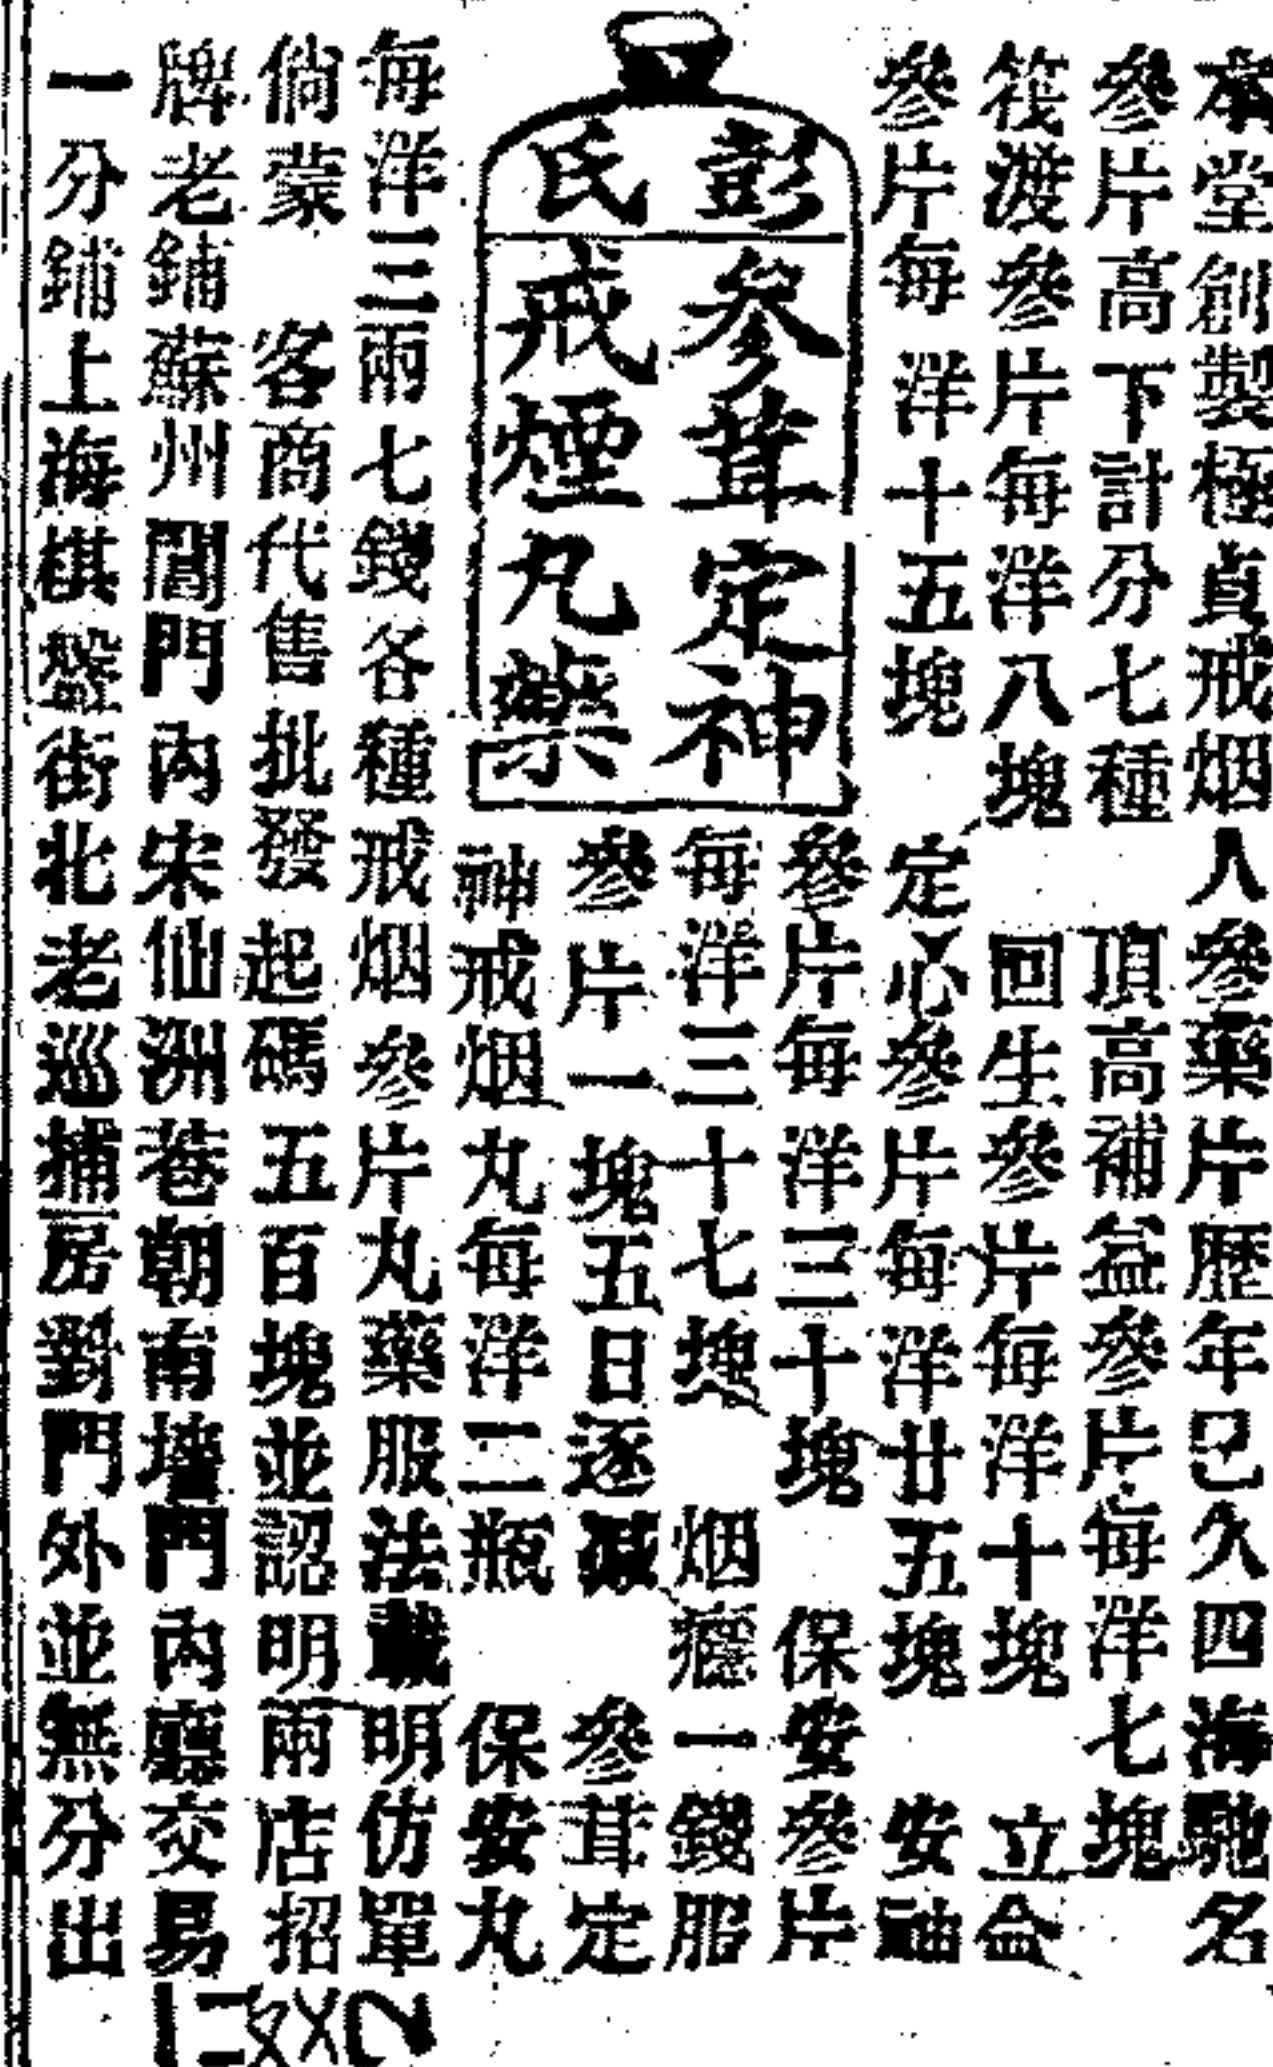 本堂創製極真戒烟人參藥片歷年已久四海馳名
參片高下計分七種　頂高補益參片每洋七塊
筏渡參片每洋八塊　回生參片每洋十塊　立命
參片每洋十五塊　定心參片每洋廿五塊　安神
參片每洋三十塊　保安參片
每洋三十七塊　烟癮一錢服
參片一塊五日逐減　參茸定
神戒烟丸每洋二瓶　保安丸
彭氏
參茸定神
戒煙丸藥
每洋三兩七錢各種戒烟參片丸藥服法載明仿單
倘蒙　客商代售批發起碼五百塊並認明兩店招
牌老鋪蘇州閶門內宋仙洲巷朝南墻門內廳交易
一分鋪上海棋盤街北老巡捕房對門外並無分出